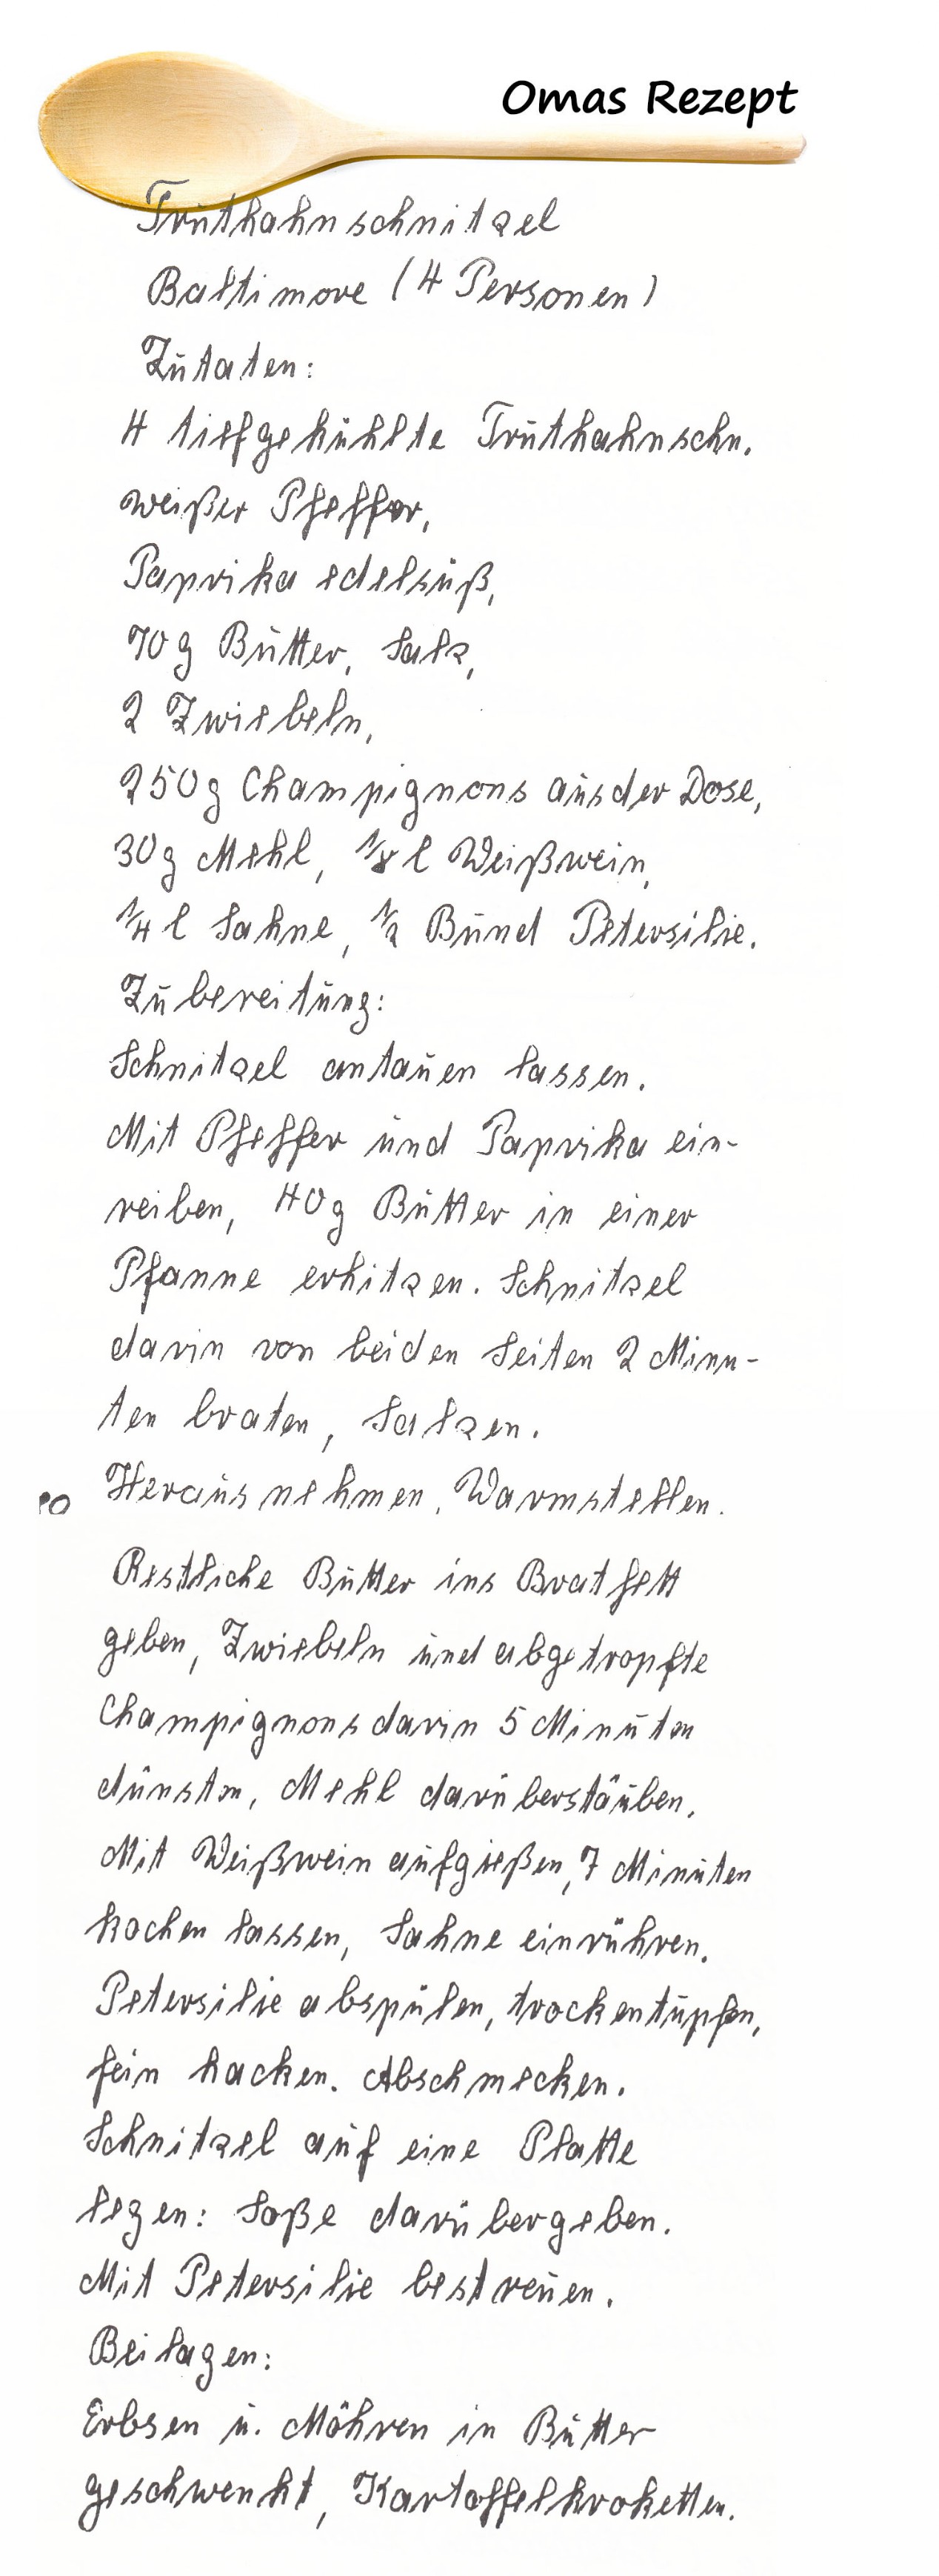 Omas Rezept
Truthahnschnitzel
Baltimore (4 Personen)
Zutaten:
4 tiefgekühlte Truthahnschn.
weißer Pfeffer,
Paprika edelsüß,
70g Butter, Salz,
2 Zwiebeln,
250g Champignons aus der Dose,
30g Mehl, 1/8 l Weißwein,
1/4 l Sahne, 1/2 Bund Petersilie.
Zubereitung:
Schnitzel antauen lassen.
Mit Pfeffer und Paprika ein-
reiben, 40g Butter in einer
Pfanne erhitzen. Schnitzel
darin von beiden Seiten 2 Minu-
ten braten, Salzen.
Herausnehmen, Warmstellen.
Restliche Butter ins Bratfett
geben, Zwiebeln und abgetropfte
Champignons darin 5 Minuten
dünsten, Mehl darüberstäuben.
Mit Weißwein aufgießen, 7 Minuten
kochen lassen, Sahne einrühren.
Petersilie abspülen, trockentupfen,
fein hacken. Abschmecken.
Schnitzel auf eine Platte
legen: Soße darübergeben.
Mit Petersilie bestreuen.
Beilagen:
Erbsen u. Möhren in Butter
geschwenkt, Kartoffelkroketten.